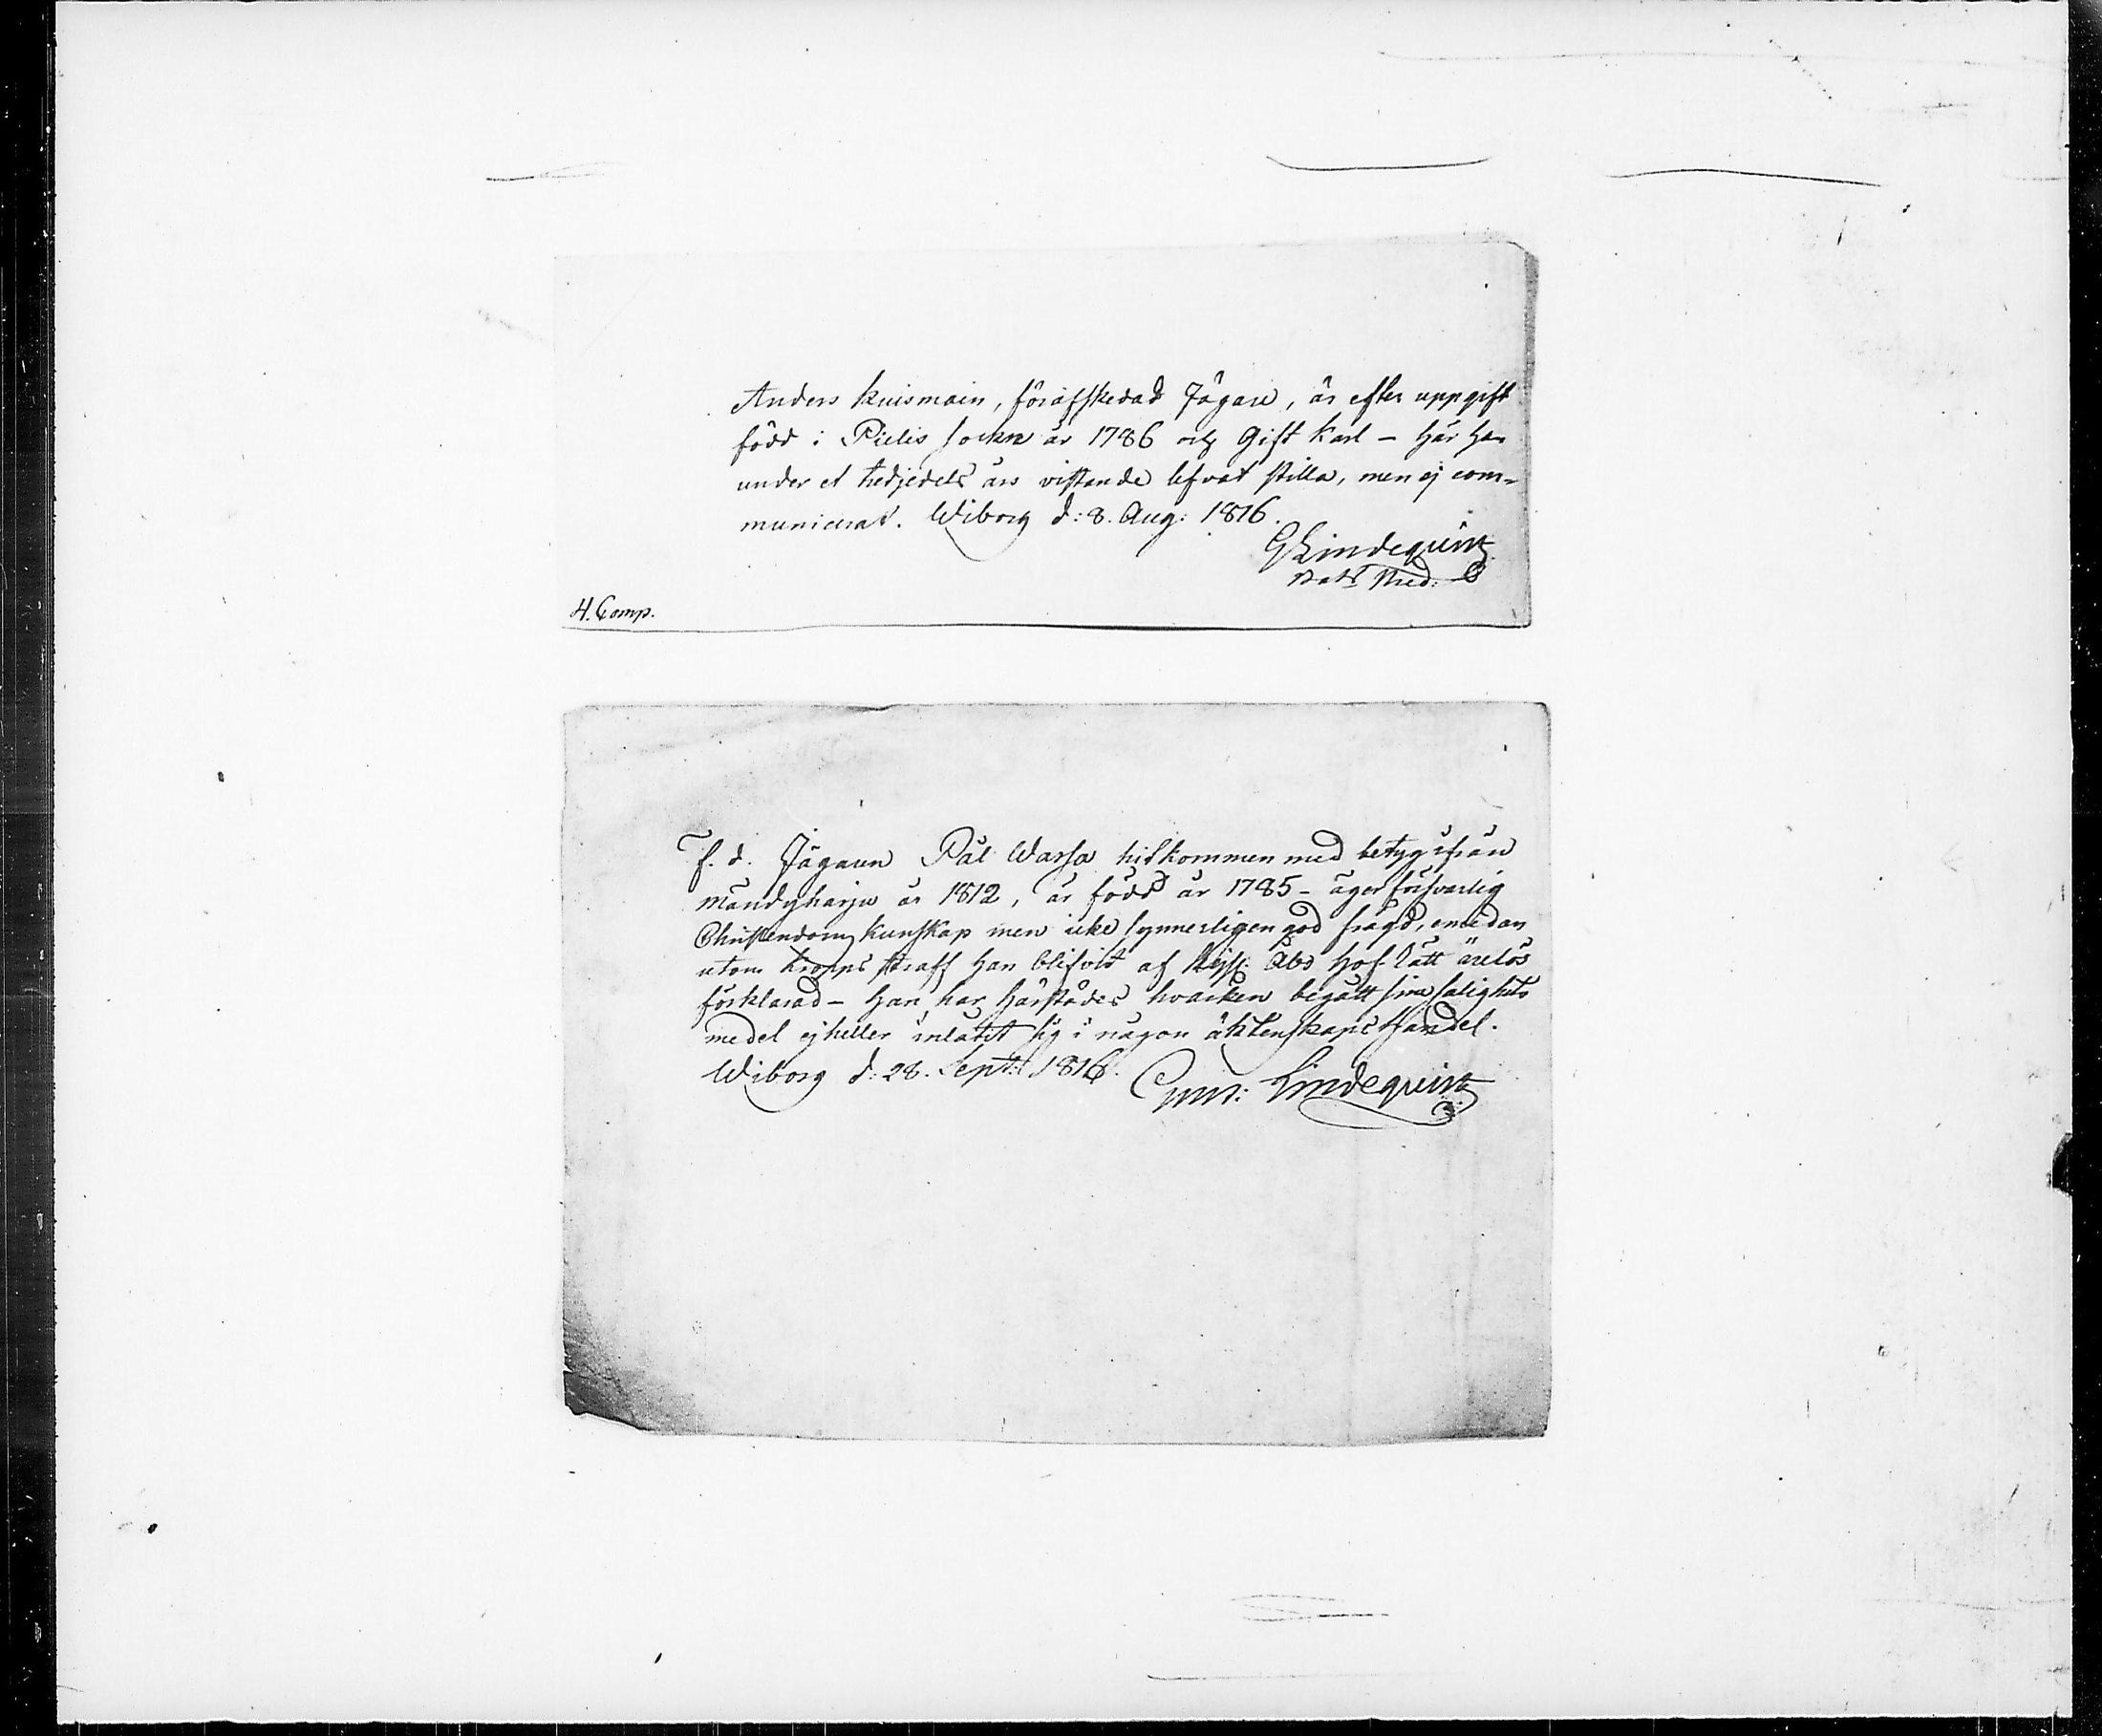 Anders Kuismain, förafskedad Jägare, är efter uppgift
född i Pielis Socken år 1786 och Gift Karl – här han
under et tredjedels års vistande lefvat stilla, men ej com-
municerat. Wiborg d: 8. Aug: 1816.
GLindequist
Bats Pred:
4. Comp.
f. d. Jägaren Pål Warsa hitkommen med betyg ifrån
Mändyharju år 1812, är född år 1785 – äger försvarlig
Christendoms kunskap men icke synnerligen god frägd, emedan
utom Kropps straff han blifvit af Kejs: Åbo Hof Rätt ärelös
förklarad – han har härstädes hvarken begått sina salighets
medel ej heller inlåtit sig i någon äktenskaps handel.
Wiborg d: 28. Sept: 1816.
Gust: Lindequist